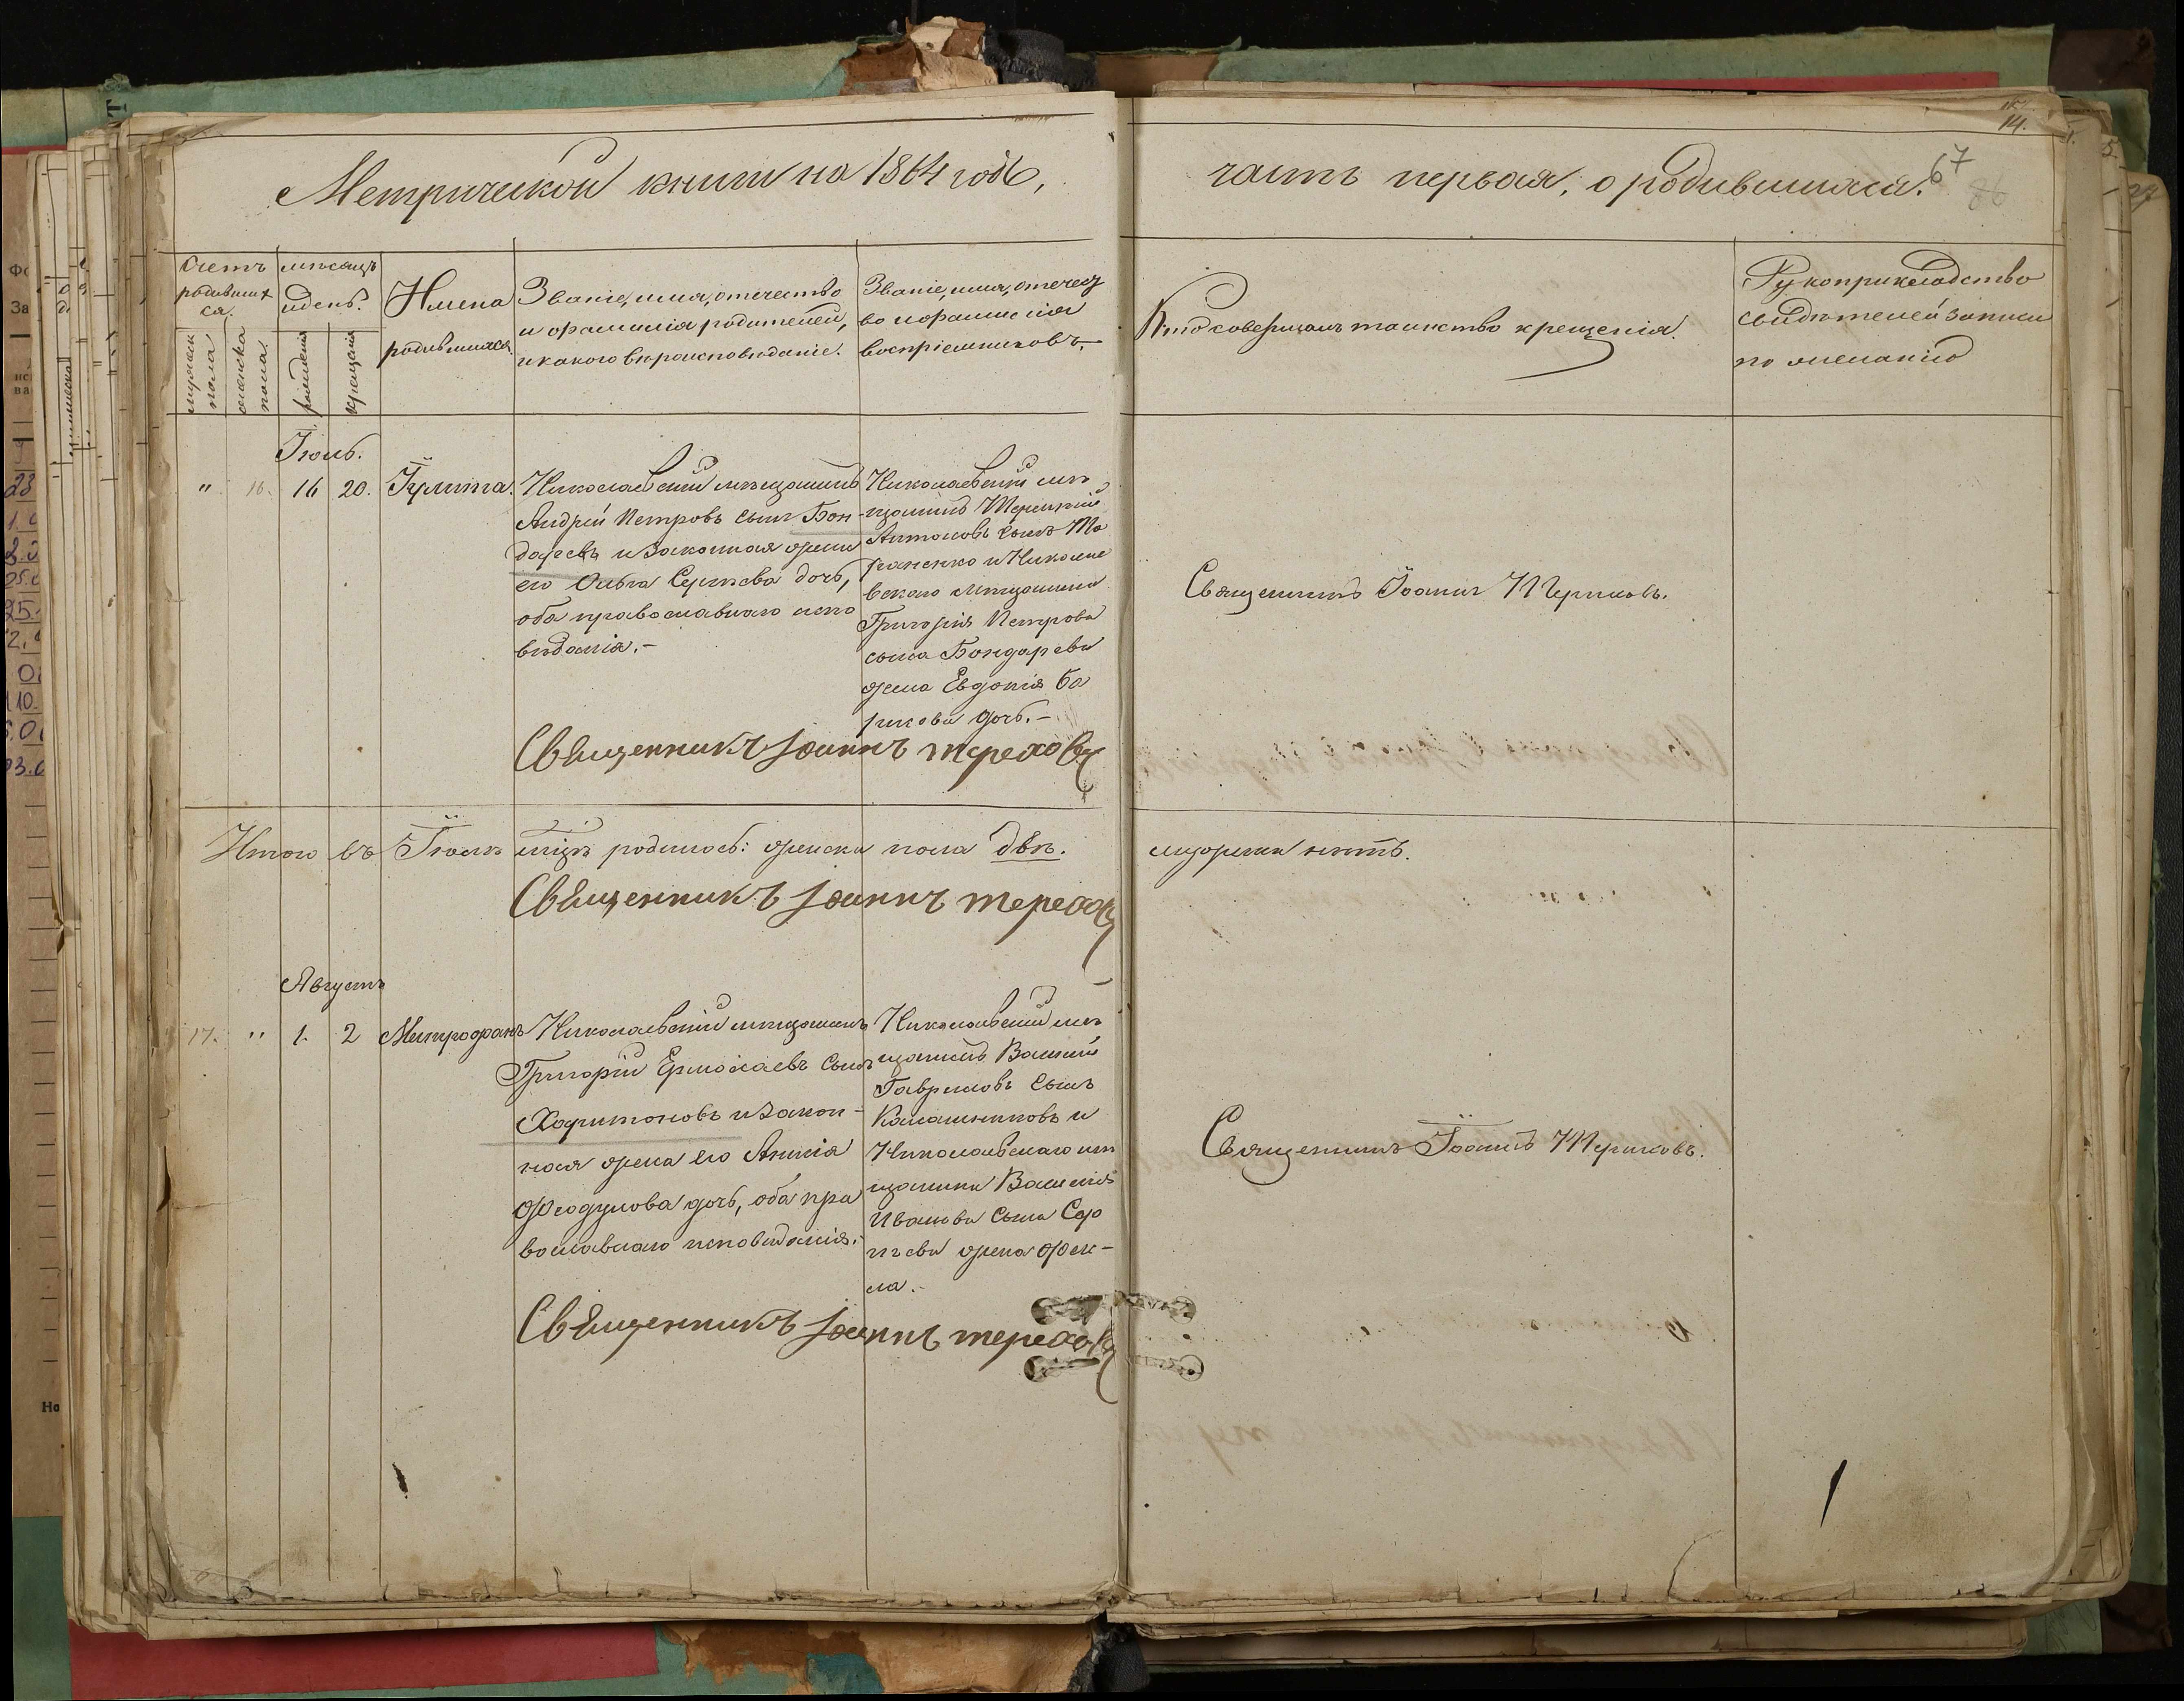 Метрической книги на 1864 годъ,
часть первая, о родившихся.
67
86
14.
Счетъ родившихся.
мѣсяцъ и день.
мужеск пола
женска пола.
рожденія
крещенія
Имена
родившихся.
Званіе, имя, отчество
и фамилія родителей,
и какого вѣроисповѣданіе.
Званіе, имя, отчест
во и фамилія
воспріемниковъ.
Кто совершалъ таинство крещенія.
Рукоприкладство
свидѣтелей записи
по желанію
Іюль.
" 16. 16 20. Іулита.
Николаевскій мѣщанинъ
Андрей Петровъ сынъ Бон-
даревъ и законная жена
его Ольга Сергѣева дочь,
оба православнаго испо
вѣданія.-
Николаевскій мѣ
щанинъ
Антоновъ сынъ Та
раненко и Николае
вскаго мѣщанина
Григорія Петрова
сына Бондарева
жена Евдокія Ба
рикова дочь.-
Священникъ Іоаннъ Тереховъ.
Священникъ Іоаннъ Тереховъ
Итого въ Іюлѣ мѣцѣ родилось: женска пола двѣ.
мужеска нѣтъ.
Священникъ Іоаннъ Тереховъ
Августъ
17. " 1. 2 Митрофанъ
Николаевскій мѣщанинъ
Григорій Ермолаевъ сынъ
Харитоновъ и закон-
ная жена его Анисія
Феодулова дочь, оба пра
вославнаго исповѣданія.-
Николаевскій мѣ
щанинъ Василій
Гавриловъ сынъ
Калашниковъ и
Николаевскаго мѣ
щанина Василія
Иванова сына
жена Фек-
ла.-
Священникъ Іоаннъ Тереховъ.
Священникъ Іоаннъ Тереховъ